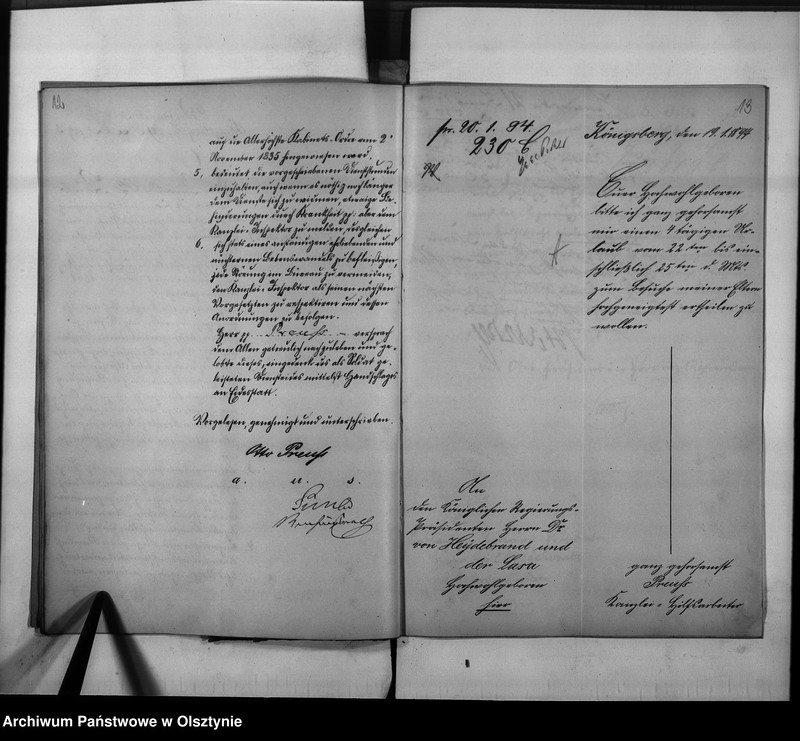 12
auf die Allerhöchste Kabinets-Ordre vom 2ᵗ
November 1835 hingewiesen ward.
5, bedeutet die vorgeschriebenen Dienststunden
einzuhalten, auch wenn es nöthig noch länger
dem Dienste sich zu widmen, etwaige Be-
hinderungen durch Krankheit pp. aber dem
Kanzlei-Inspektor zu melden, desgleichen
6, sich stets eines anständigen, ehrliebenden und
nüchternen Lebenswandels zu befleißigen,
jede Störung im Büreau zu vermeiden,
den Kanzlei-Inspektor als seinen nächsten
Vorgesetzten zu respektiren und dessen
Anordnungen zu befolgen.
Herr pp. Preuß. – versprach
dem Allen getreulich nachzuleben und ge-
lobte dieses, eingedenk des als Soldat ge-
leisteten Diensteides mittelst Handschlages
an Eidesstatt.
Vorgelesen, genehmigt und unterschrieben.
Otto Preuß
a. u. s.
13
pr. 20. 1. 94.
230
Königsberg, den 19. 1. 1894
Euer Hochwohlgeboren
bitte ich ganz gehorsamst
mir einen 4 tägigen Ur-
laub vom 22ten bis ein-
schließlich 25ten d. Mts.
zum Besuche meiner Eltern
hochgeneigtest ertheilen zu
wollen.
An
den Königlichen Regierungs-
Präsidenten Herrn Dr
von Heydebrand und
der Lasa
Hochwohlgeboren
hier
ganz gehorsamst
Preuß
Kanzlei-Hilfsarbeiter
Archiwum Państwowe w Olsztynie